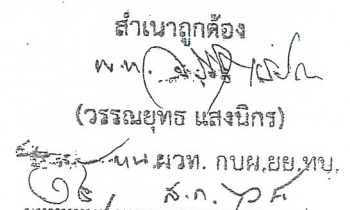 สำเนาถูกต้อง
พ.ท.
(วรรณยุทธ แสงนิกร)
หน.ผวท. กบผ.ยย.ทบ.
๑๕ ส.ค.